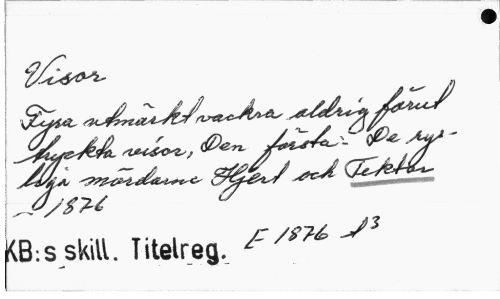 Visor
Fyra utmärkt vackra aldrig förut
tryckta visor, Den första: De rys-
liga mördarne Hjert och Tektor
— 1876
KB:s skill. Titelreg. E 1876 d3